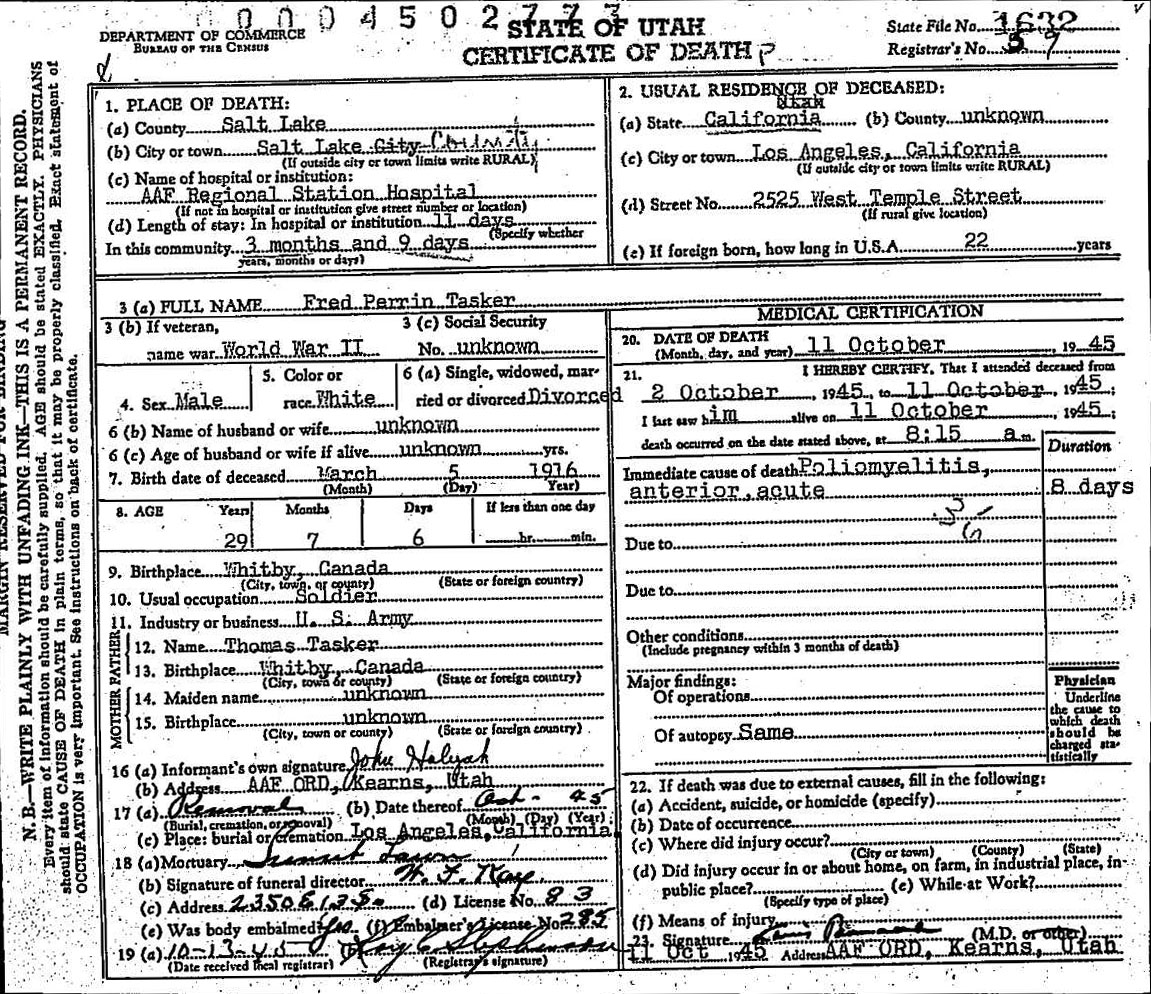 0 0 0 4 5 0 2 7 7 3
DEPARTMENT OF COMMERCE
BUREAU OF THE CENSUS
STATE OF UTAH
CERTIFICATE OF DEATH
State File No. 1632
Registrar's No. 9
MARGIN RESERVED FOR BINDING
N. B.—WRITE PLAINLY WITH UNFADING INK—THIS IS A PERMANENT RECORD.
Every item of information should be carefully supplied. AGE should be stated EXACTLY. PHYSICIANS
should state CAUSE OF DEATH in plain terms, so that it may be properly classified. Exact statement of
OCCUPATION is very important. See instructions on back of certificate.
1. PLACE OF DEATH:
(a) County Salt Lake
(b) City or town Salt Lake City County
(If outside city or town limits write RURAL)
(c) Name of hospital or institution:
AAF Regional Station Hospital
(If not in hospital or institution give street number or location)
(d) Length of stay: In hospital or institution 11 days
(Specify whether
In this community 3 months and 9 days
years, months or days)
2. USUAL RESIDENCE OF DECEASED:
(a) State California (b) County unknown
(c) City or town Los Angeles, California
(If outside city or town limits write RURAL)
(d) Street No. 2525 West Temple Street
(If rural give location)
(e) If foreign born, how long in U.S.A. 22 years
3 (a) FULL NAME Fred Perrin Tasker
3 (b) If veteran, 3 (c) Social Security
name war World War II No. unknown
4. Sex Male 5. Color or race White 6 (a) Single, widowed, married or divorced Divorced
6 (b) Name of husband or wife unknown
6 (c) Age of husband or wife if alive unknown yrs.
7. Birth date of deceased March 5 1916
(Month) (Day) Year)
8. AGE Years Months Days If less than one day
29 7 6 hr. min.
9. Birthplace Whitby, Canada
(City, town, or county) (State or foreign country)
10. Usual occupation Soldier
11. Industry or business U. S. Army
FATHER
12. Name Thomas Tasker
13. Birthplace Whitby, Canada
(City, town or county) (State or foreign country)
MOTHER
14. Maiden name unknown
15. Birthplace unknown
(City, town or county) (State or foreign country)
16 (a) Informant's own signature John
(b) Address AAF ORD, Kearns, Utah
17 (a) Removal (b) Date thereof Oct - 45
(Burial, cremation, or removal) (Month) (Day) (Year)
(c) Place: burial or cremation Los Angeles, California
18 (a) Mortuary Sunset Lawn
(b) Signature of funeral director
(c) Address 2350 E 13 So. (d) License No. 83
(e) Was body embalmed? Yes (f) Embalmer's License No. 285
19 (a) 10-13-45
(Date received local registrar) (Registrar's signature)
MEDICAL CERTIFICATION
20. DATE OF DEATH
(Month, day, and year) 11 October 19 45
21. I HEREBY CERTIFY, That I attended deceased from
2 October, 1945, to 11 October, 1945;
I last saw him alive on 11 October, 1945;
death occurred on the date stated above, at 8:15 a.m.
Duration
Immediate cause of death Poliomyelitis,
anterior, acute 8 days
Due to
Due to
Other conditions
(Include pregnancy within 3 months of death)
Major findings:
Of operations
Of autopsy Same
Physician
Underline
the cause to
which death
should be
charged sta-
tistically
22. If death was due to external causes, fill in the following:
(a) Accident, suicide, or homicide (specify)
(b) Date of occurrence
(c) Where did injury occur?
(City or town) (County) (State)
(d) Did injury occur in or about home, on farm, in industrial place, in
public place? (e) While at Work?
(Specify type of place)
(f) Means of injury
23. Signature (M.D. or other)
11 Oct 1945 Address AAF ORD, Kearns, Utah